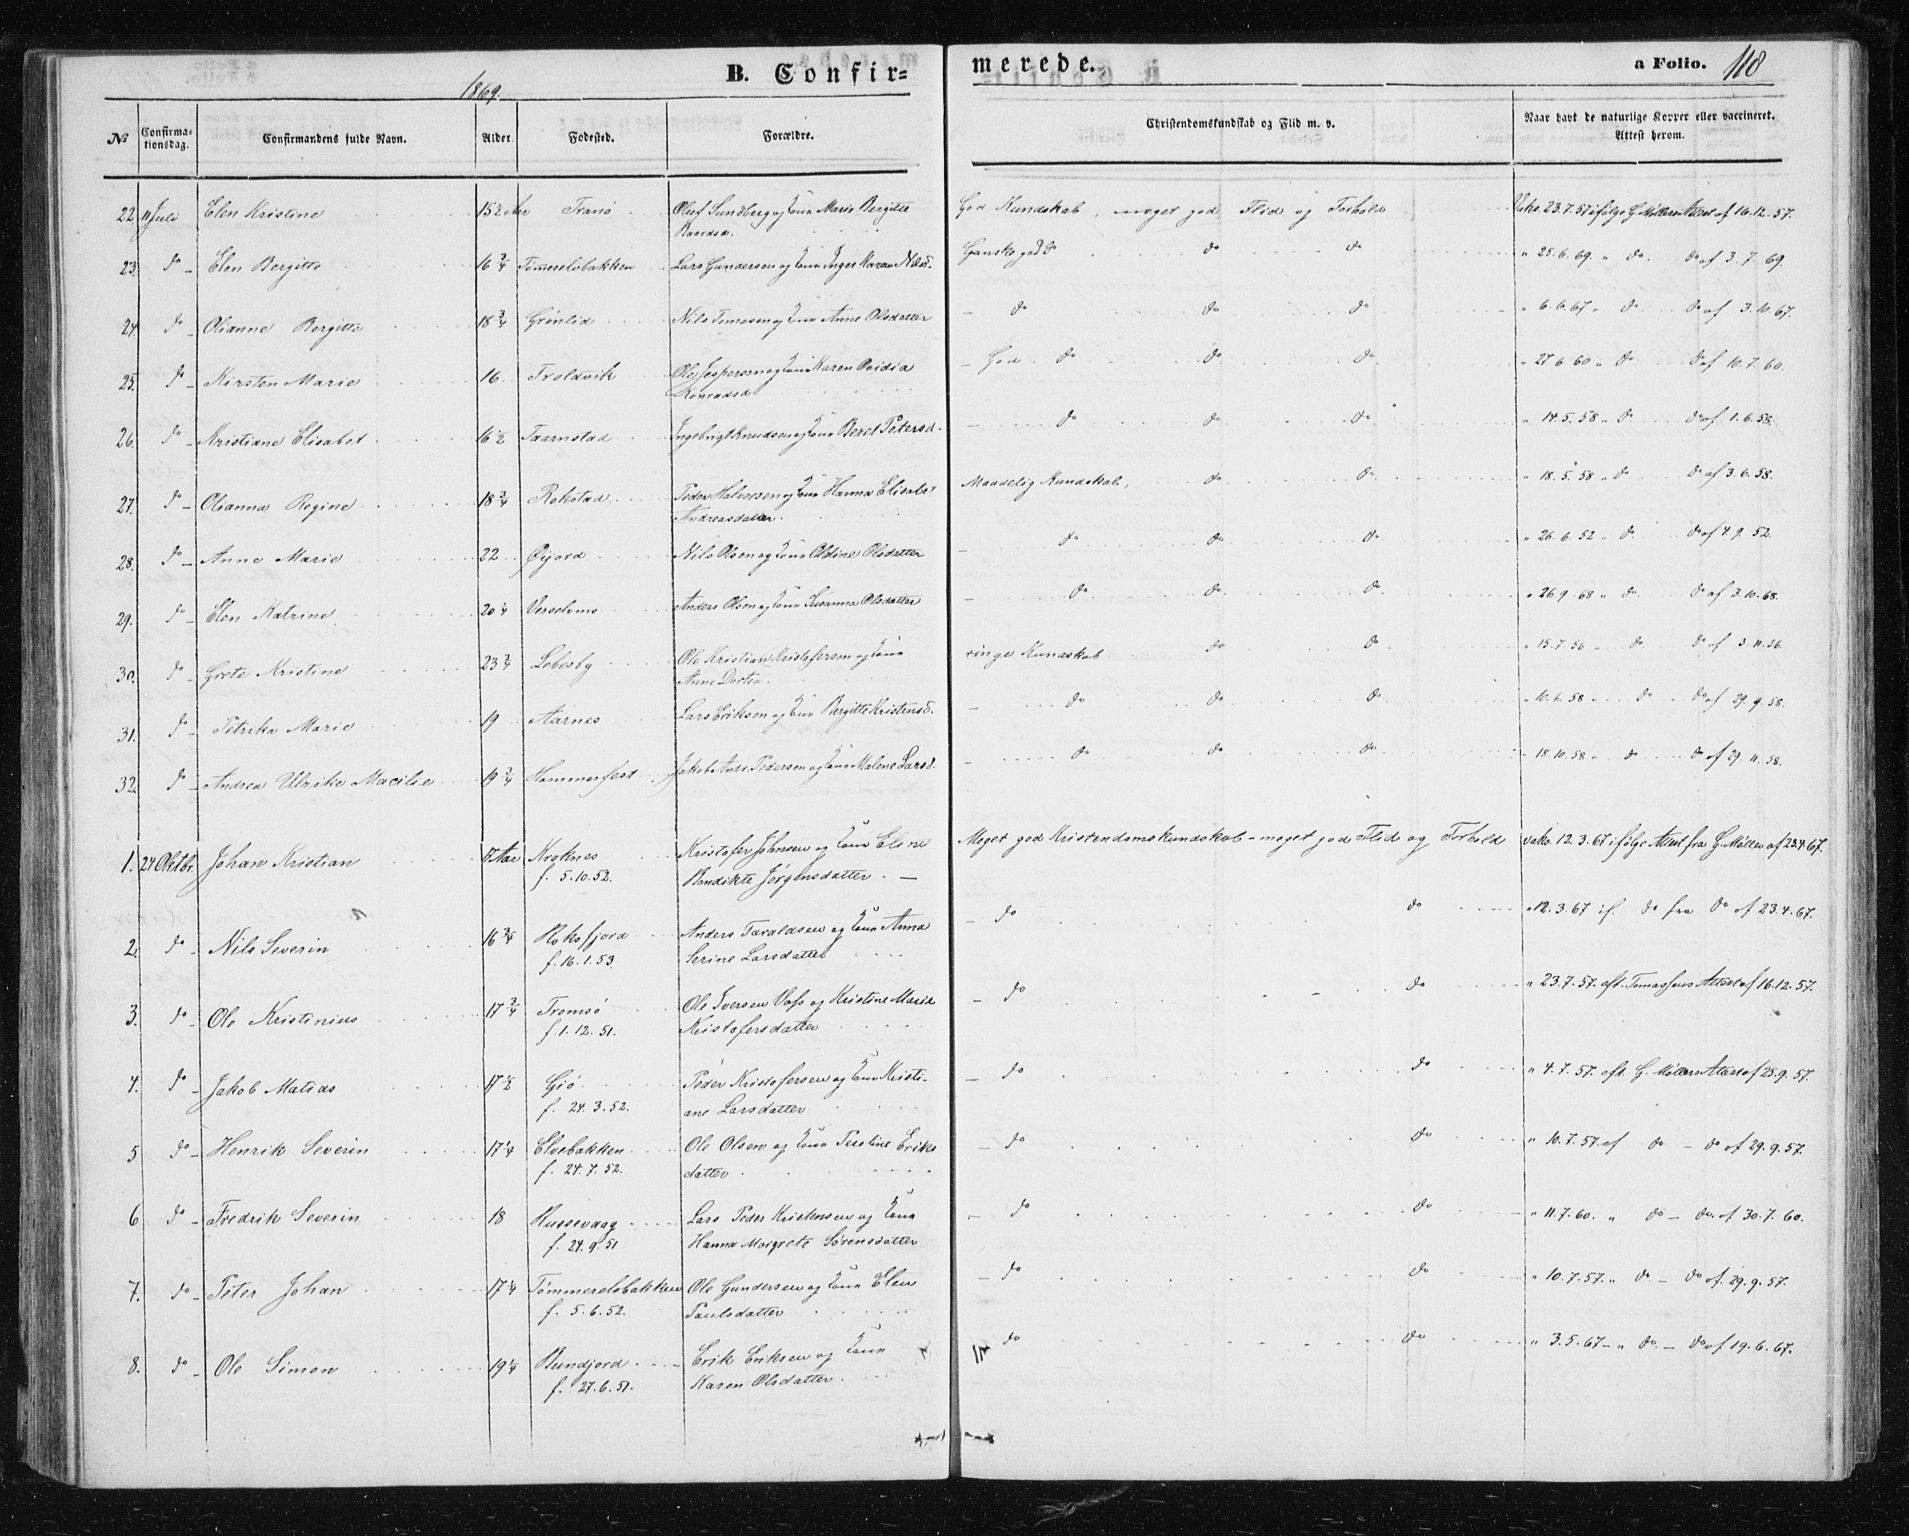 B. Confir=
merede.
a Folio. 118
1869.
№ Confirma-tionsdag. Confirmandens fulde Navn. Alder Fødested. Forældre. Christendomskundskab og Flid m. v. Naar havt de naturlige Kopper eller vaccineret. Attest herom.
22 11 Juli Elen Kristine 15½ Aar Tranø Oluf Sundberg og Kone Marie Bergitte God Kundskab, meget god Flid og Forhold Vakc. 23.7.57 ifølge G. Møllers Attest af 16.12.57.
Baardsd.
23. do Elen Bergitte 16 ¾ Tømmerelvbakken Lars Gundersen og Kone Inger Karen Nilsd. Ganske god do do do " 25.6.69. " do do af 3.7.69.
24 do Olianne Bergitte 18 ¾ Grønlid Nils Tomasen og Kone Anne Olsdatter – do do do " 6.6.67 " do do af 3.10.67.
25. do Kirsten Marie 16 Troldvik Ole Jespersen og Kone Karen Ovidia – God do do do " 27.6.60 " do do af 10.7.60.
Konradsd
26. do Kristiane Elisabet 16½ Taarnstad Ingebrigt Knudsen og Kone Beret Petersd. – do do do " 14.5.58 " do do af 1.6.58.
27. do Olianna Regine 18 ¾ Rokstad Peder Halvorsen og Kone Hanna Elisabet Maadelig Kundskab, do do " 18.5.58 " do do af 3.6.58.
Andreasdatter.
28. do Anne Marie 22 Øyjord Nils Olsen og Kone Oldine Olsdatter – do do do " 26.6.52 " do do af 4.9.52.
29. do Elen Katrine 20 ¼ Anders Olsen og Kone Susanna Olsdatter – do do do " 26.9.68 " do do af 3.10.68.
30. do Grete Kristine 23 ¾ Lebesby Ole Kristian Kristofersen og Kone ringe Kundskab do do " 15.7.56 " do do af 3.11.56.
Anne Dortea.
31. do Petrika Marie 19 Aarnes Lars Eriksen og Kone Bergitte Kristensd. – do do do " 10.6.58 " do do af 29.9.58.
32. do Andrea Ulrike Macilie 19 ¾ Hammerfest Jakob Aars Pedersen og Kone Malene Larsd. – do do do " 18.10.58 " do do af 29.11.58.
1. 24 Oktbr. Johan Kristian 17 Aar Kroknes Kristofer Johnsen og Kone Eline Meget god Kristendomskundskab – meget god Flid og Forhold vakc. 12.3.67 ifølge Attest fra G. Møller af 23.4.67.
f. 5.10.52. Bendikte Jørgensdatter. –
2. do Nils Severin 16 ¾ Roksfjord Anders Taraldsen og Kone Anna – do do " 12.3.67 if. do fra do af 23.4.67.
f. 16.1.53. Serine Larsdatter
3. do Ole Kristinius 17 ¾ Tromsø Ole Iversen Vass og Kristine Marie – do do " 23.7.57. eft. Tomassens Attest af 16.12.57.
f. 1.12.51. Kristofersdatter
4. do Jakob Matias 17½ Giø Peder Kristofersen og Kone Kristi- – do do " 4.7.57. eft. G. Møllers Attest af 25.9.57.
f. 24.3.52. ane Larsdatter
5 do Henrik Severin 17 ¼ Elvebakken Ole Olsen og Kone Persline Eriks – do do " 10.7.57. ef do – do af 29.9.57.
f. 24.7.52. datter.
6 do Fredrik Severin 18 Russevaag Lars Peder Kristensen og Kone – do do " 11.7.60. " do – do. af 30.7.60.
f. 24.9.51 Hanna Margrete Sørensdatter
7. do Peter Johan 17 ¼ Tømmerelvbakken Ole Gundersen og Kone Elen – do do " 10.7.57. " do – do af. 29.9.57.
f. 5.6.52. Paulsdatter
8. do Ole Simon 19 ¼ Bundjord Erik Eriksen og Kone do do " 3.5.67 – " do. – do af 19.6.67.
f. 27.6.51. Karen Olsdatter.